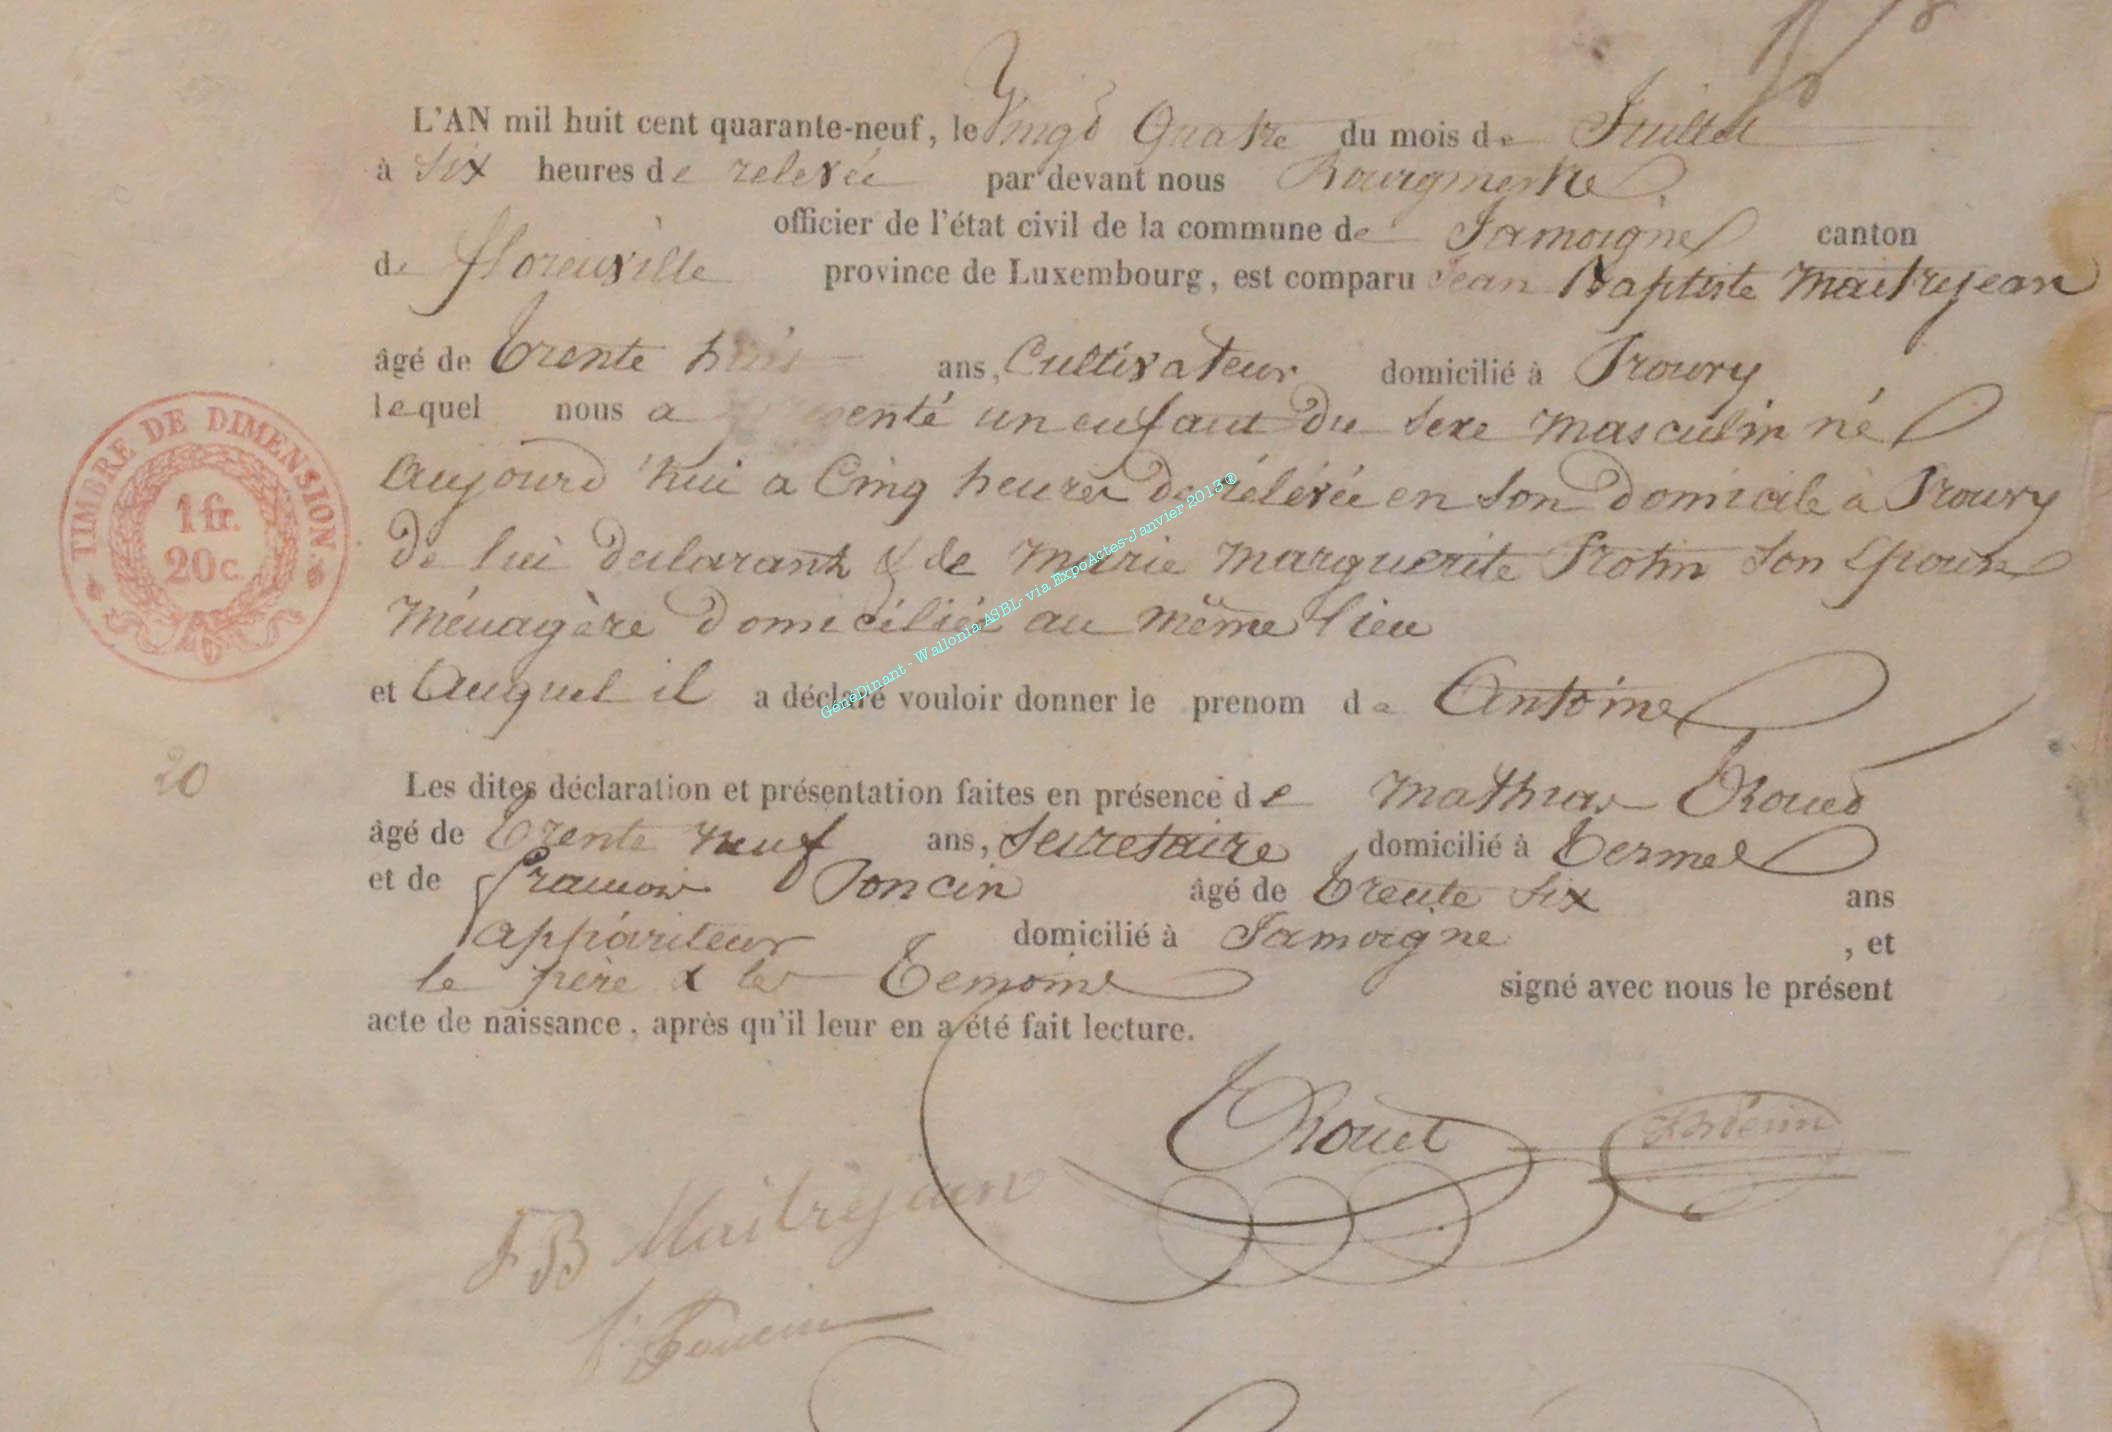 L'AN mil huit cent quarante-neuf, le Vingt Quatre du mois de Juillet
à Six heures de relevée par devant nous Bourgmestre
officier de l'état civil de la commune de Jamoigne canton
de florenville province de Luxembourg, est comparu Jean Baptiste Maitrejean
âgé de trente huit ans, Cultivateur domicilié à Prouvy
lequel nous a présenté un enfant du sexe masculin né
aujourd'hui a Cinq heures de rélévée en son domicile à Prouvy
de lui declarant & de Marie Marguerite son Epouse
Ménagère domiciliée au même lieu
et auquel il a déclaré vouloir donner le prenom de Antoine
Les dites déclaration et présentation faites en présence de Mathias Roued
âgé de trente neuf ans, Secretaire domicilié à termes
et de françois Poncin âgé de trente six ans
appariteur domicilié à Jamoigne , et
le père & les temoins signé avec nous le présent
acte de naissance, après qu'il leur en a été fait lecture.
Rouet
JB Maitrejean
f. Poncin
TIMBRE DE DIMENSION.
1 fr.
20 c.
20
GénéaDinant - Wallonia ASBL- via ExpoActes-Janvier 2013®